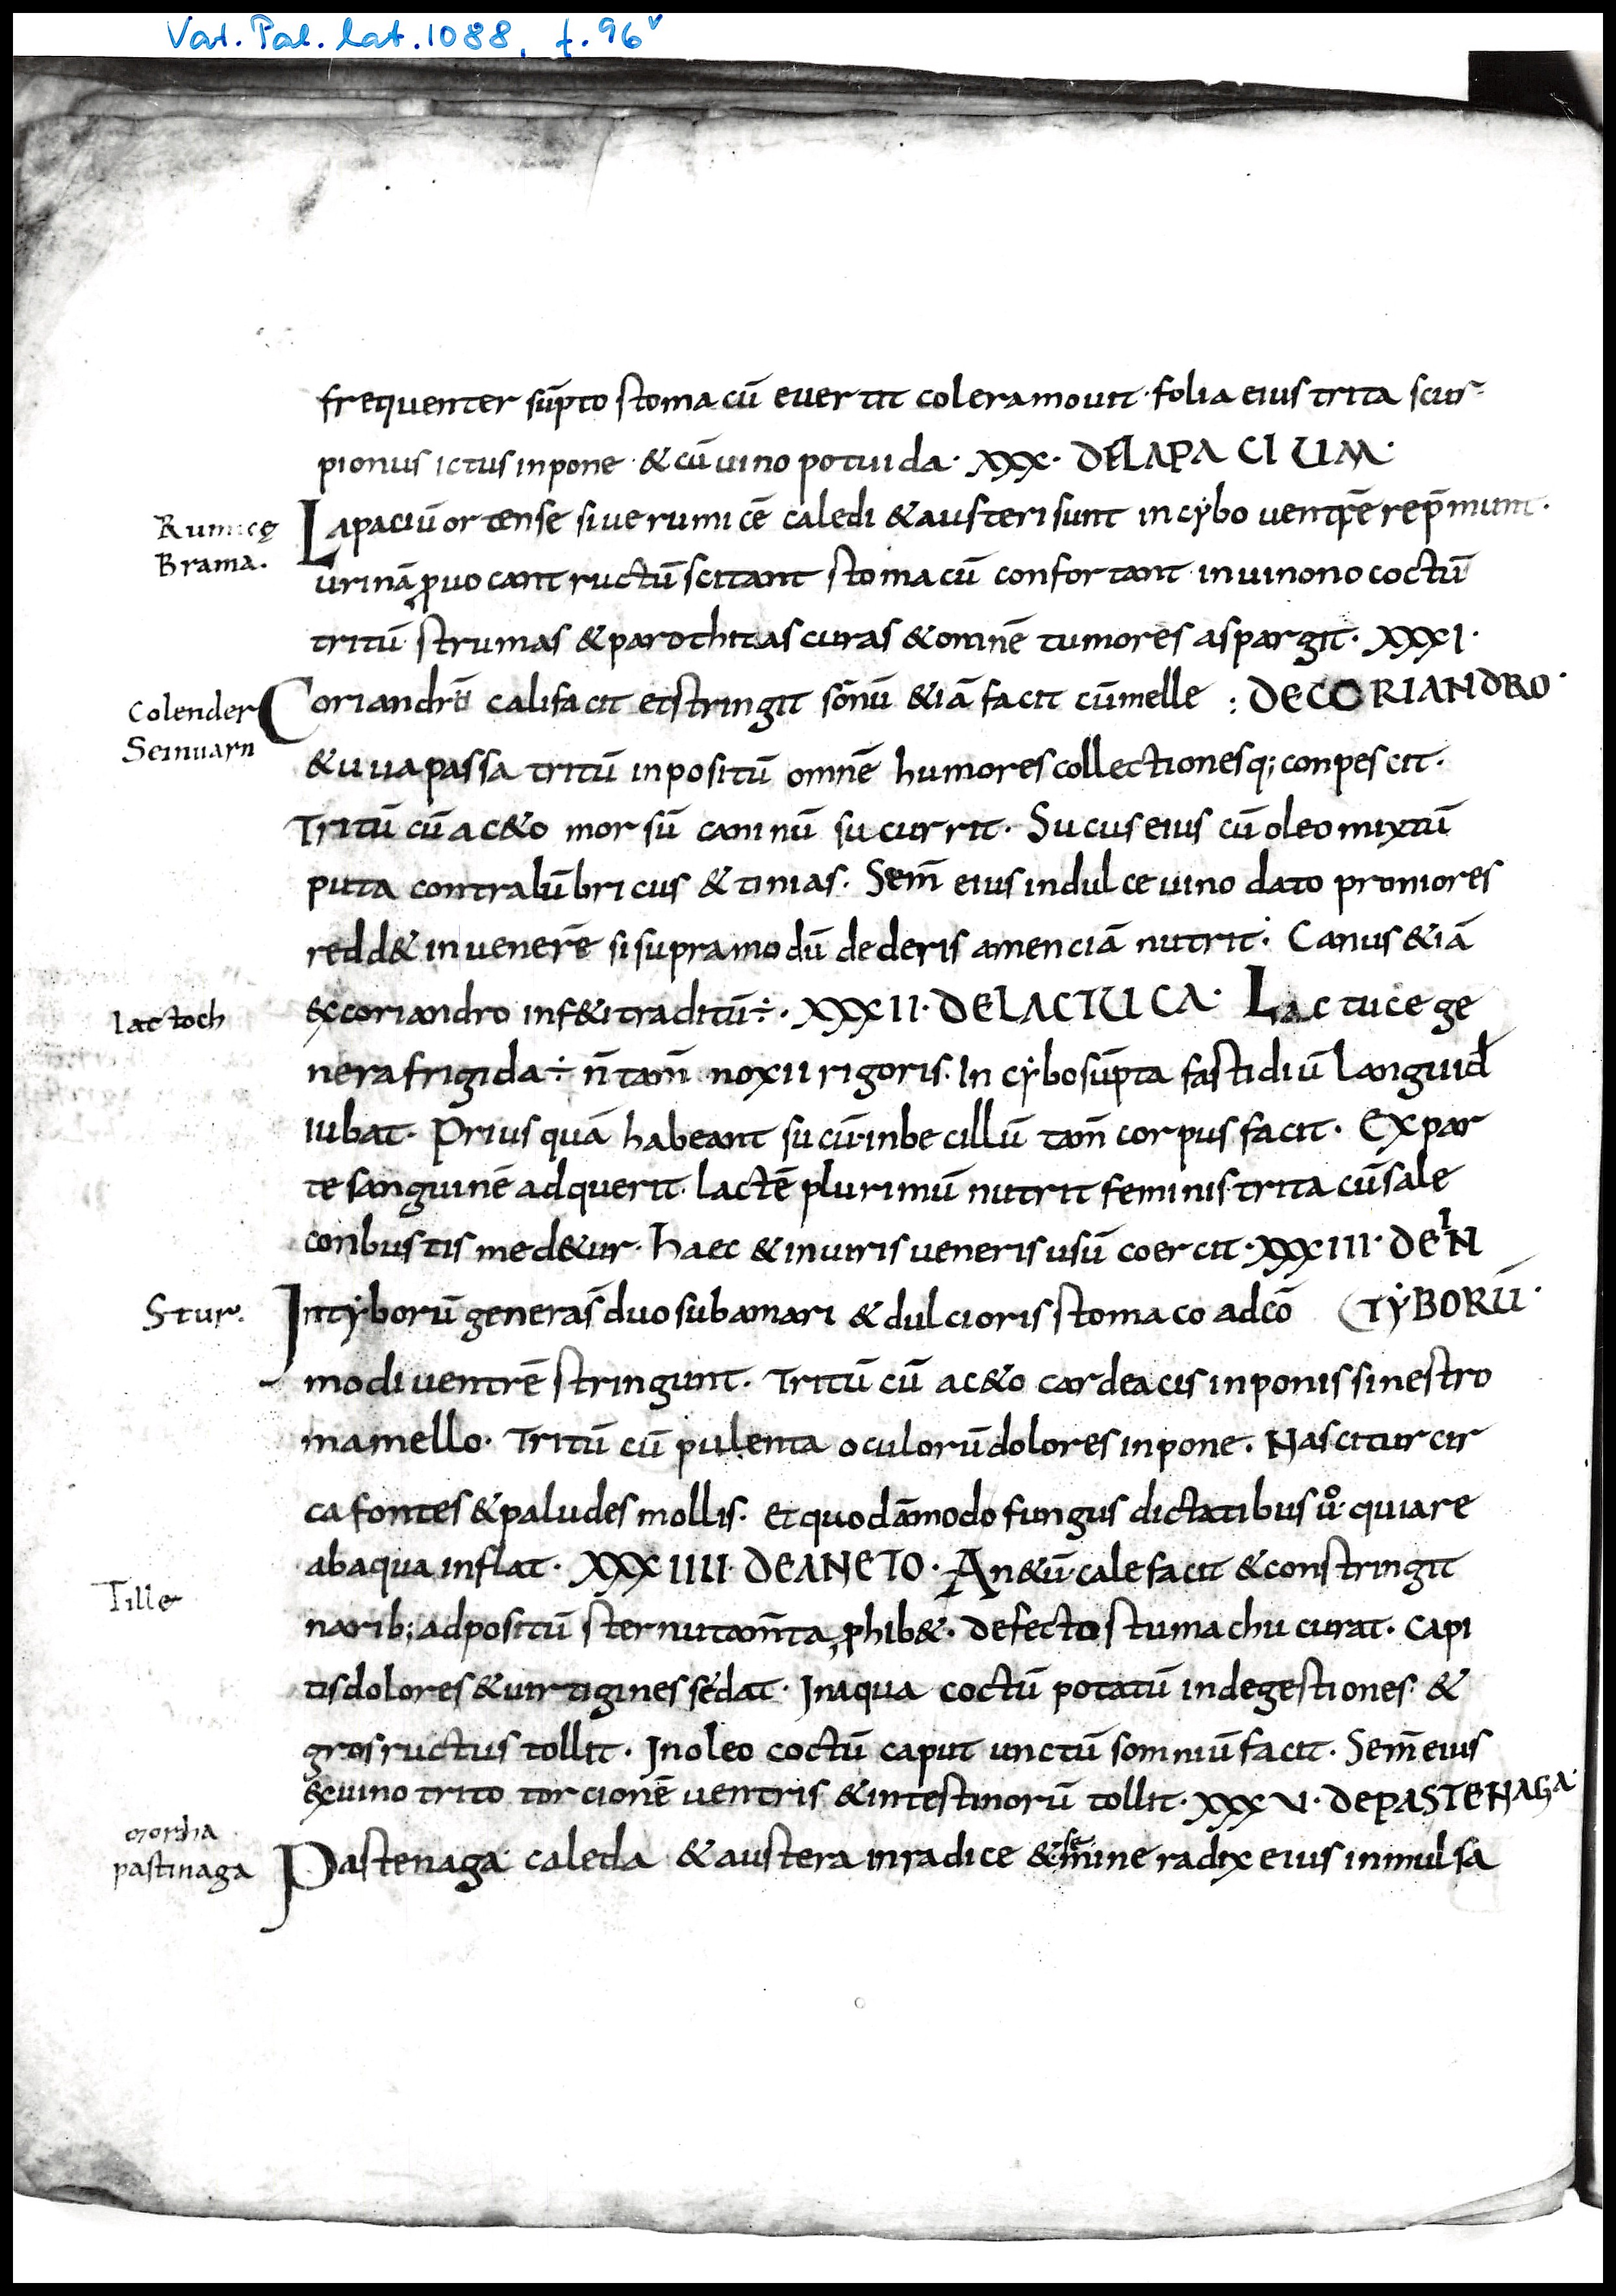 Vat. Pal. lat. 1088, f. 96v
frequenter sūpto stomacū evertit colera movit· folia eius trita scur-
pionus ictus inpone· & cū uino potui da· XXX· DE LAPACIUM·
Rumice
Brama.
Lapaciū ortense siue rumicē caledi & austeri sunt in cybo uentrē rep̄munt·
urinā ꝓuocant ructū scitant stomacū confortant in uino no coctū
tritū strumas & parothitas curas & omnē tumores aspargit· XXXI·
Colender
Coriandrū califacit et stringit sōnū &iā facit cū melle : DE CORIANDRO·
& uua passa tritū inpositū omnē humores collectionesq; conpescit·
Tritū cū ac&o morsū caninū sucurrit· Sucus eius cū oleo mixtū
puta contra lūbricus & tinias· Sem̄ eius in dulce uino dato promores
redd& in uenerē si supra modū dederis amenciā nutrit· Canus &iā
lactoch
ex coriandro inf&i traditū÷· XXXII· DE LACTUCA· Lactuce ge
nera frigida÷ n̄ tam̄ noxii rigoris· In cybo sūpta fastidiū languid
iubat· Prius quā habeant sucū· inbecillū tam̄ corpus facit· Ex par
te sanguinē adquerit· lactē plurimū nutrit feminis trita cū sale
conbustis med&ur· Haec & in uiris ueneris usū coercit· XXXIII· DE IN
Stur.
Intyborū genera s̄ duo subamari & dulcioris stomaco adcō TYBORŪ·
modi uentrē stringunt· Tritū cū ac&o cardeacis inponis sinestro
mamello· Tritū cū pulenta oculorū dolores inpone· Nascitur cir
ca fontes & paludes mollis· et quodāmodo fungus dictatibus ů· quiare
ab aqua inflat· XXXIIII· DE ANETO· An&ū· calefacit & constringit
Tille
narib; adpositū sternutam̄ta ꝓhib&· defecto stumachu curat· Capi
tis dolores & uirtigines sedat· In aqua coctū potatū indegestiones &
gros ructus tollit· In oleo coctū caput unctū somniū facit· Sem̄ eius
ex uino trito torcionē uentris & intestinorū tollit· XXXV· DE PASTENAGA·
morha
pastinaga
Pastenaga· caleda & austera in radice & semine radix eius in mulsa